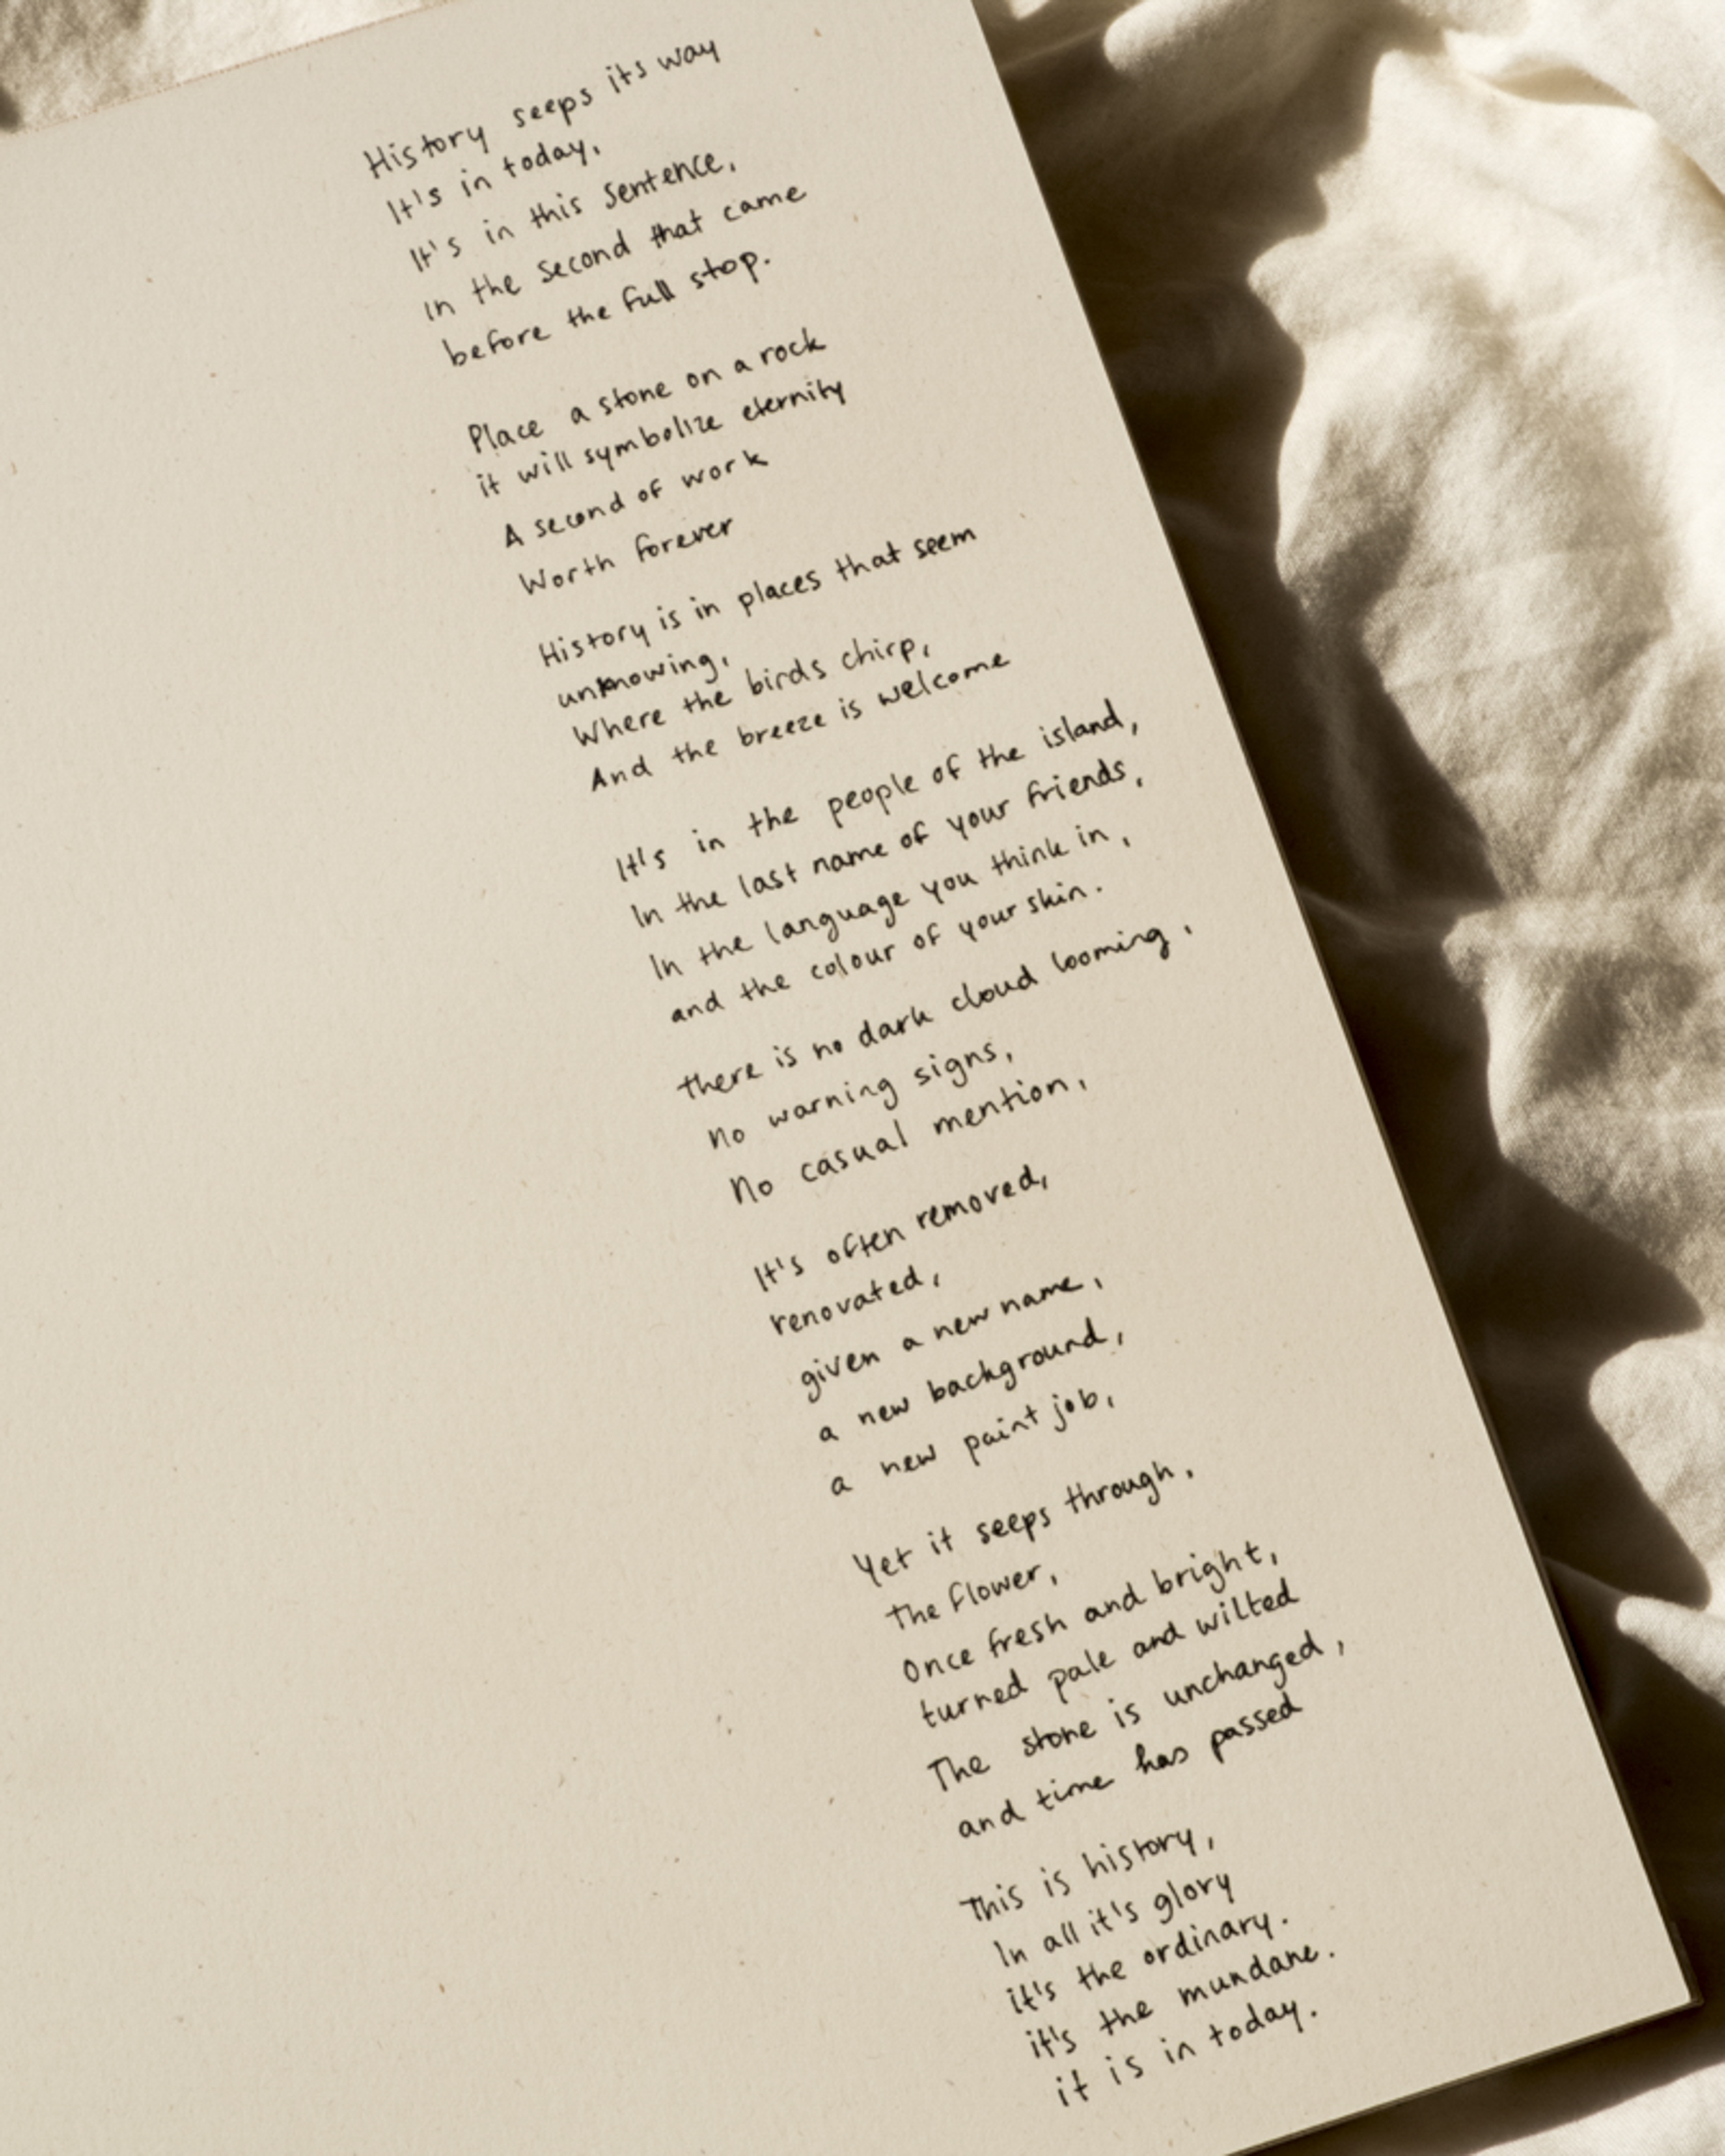 History seeps its way
It's in today,
It's in this sentence,
In the second that came
before the full stop.
Place a stone on a rock
it will symbolize eternity
A second of work
Worth forever
History is in places that seem
unknowing,
Where the birds chirp,
And the breeze is welcome
It's in the people of the island,
In the last name of your friends,
In the language you think in,
and the colour of your skin.
There is no dark cloud looming,
No warning signs,
No casual mention,
It's often removed,
renovated,
given a new name,
a new background,
a new paint job,
Yet it seeps through,
The flower,
Once fresh and bright,
turned pale and wilted
The stone is unchanged,
and time has passed
This is history,
In all it's glory
it's the ordinary.
it's the mundane.
it is in today.